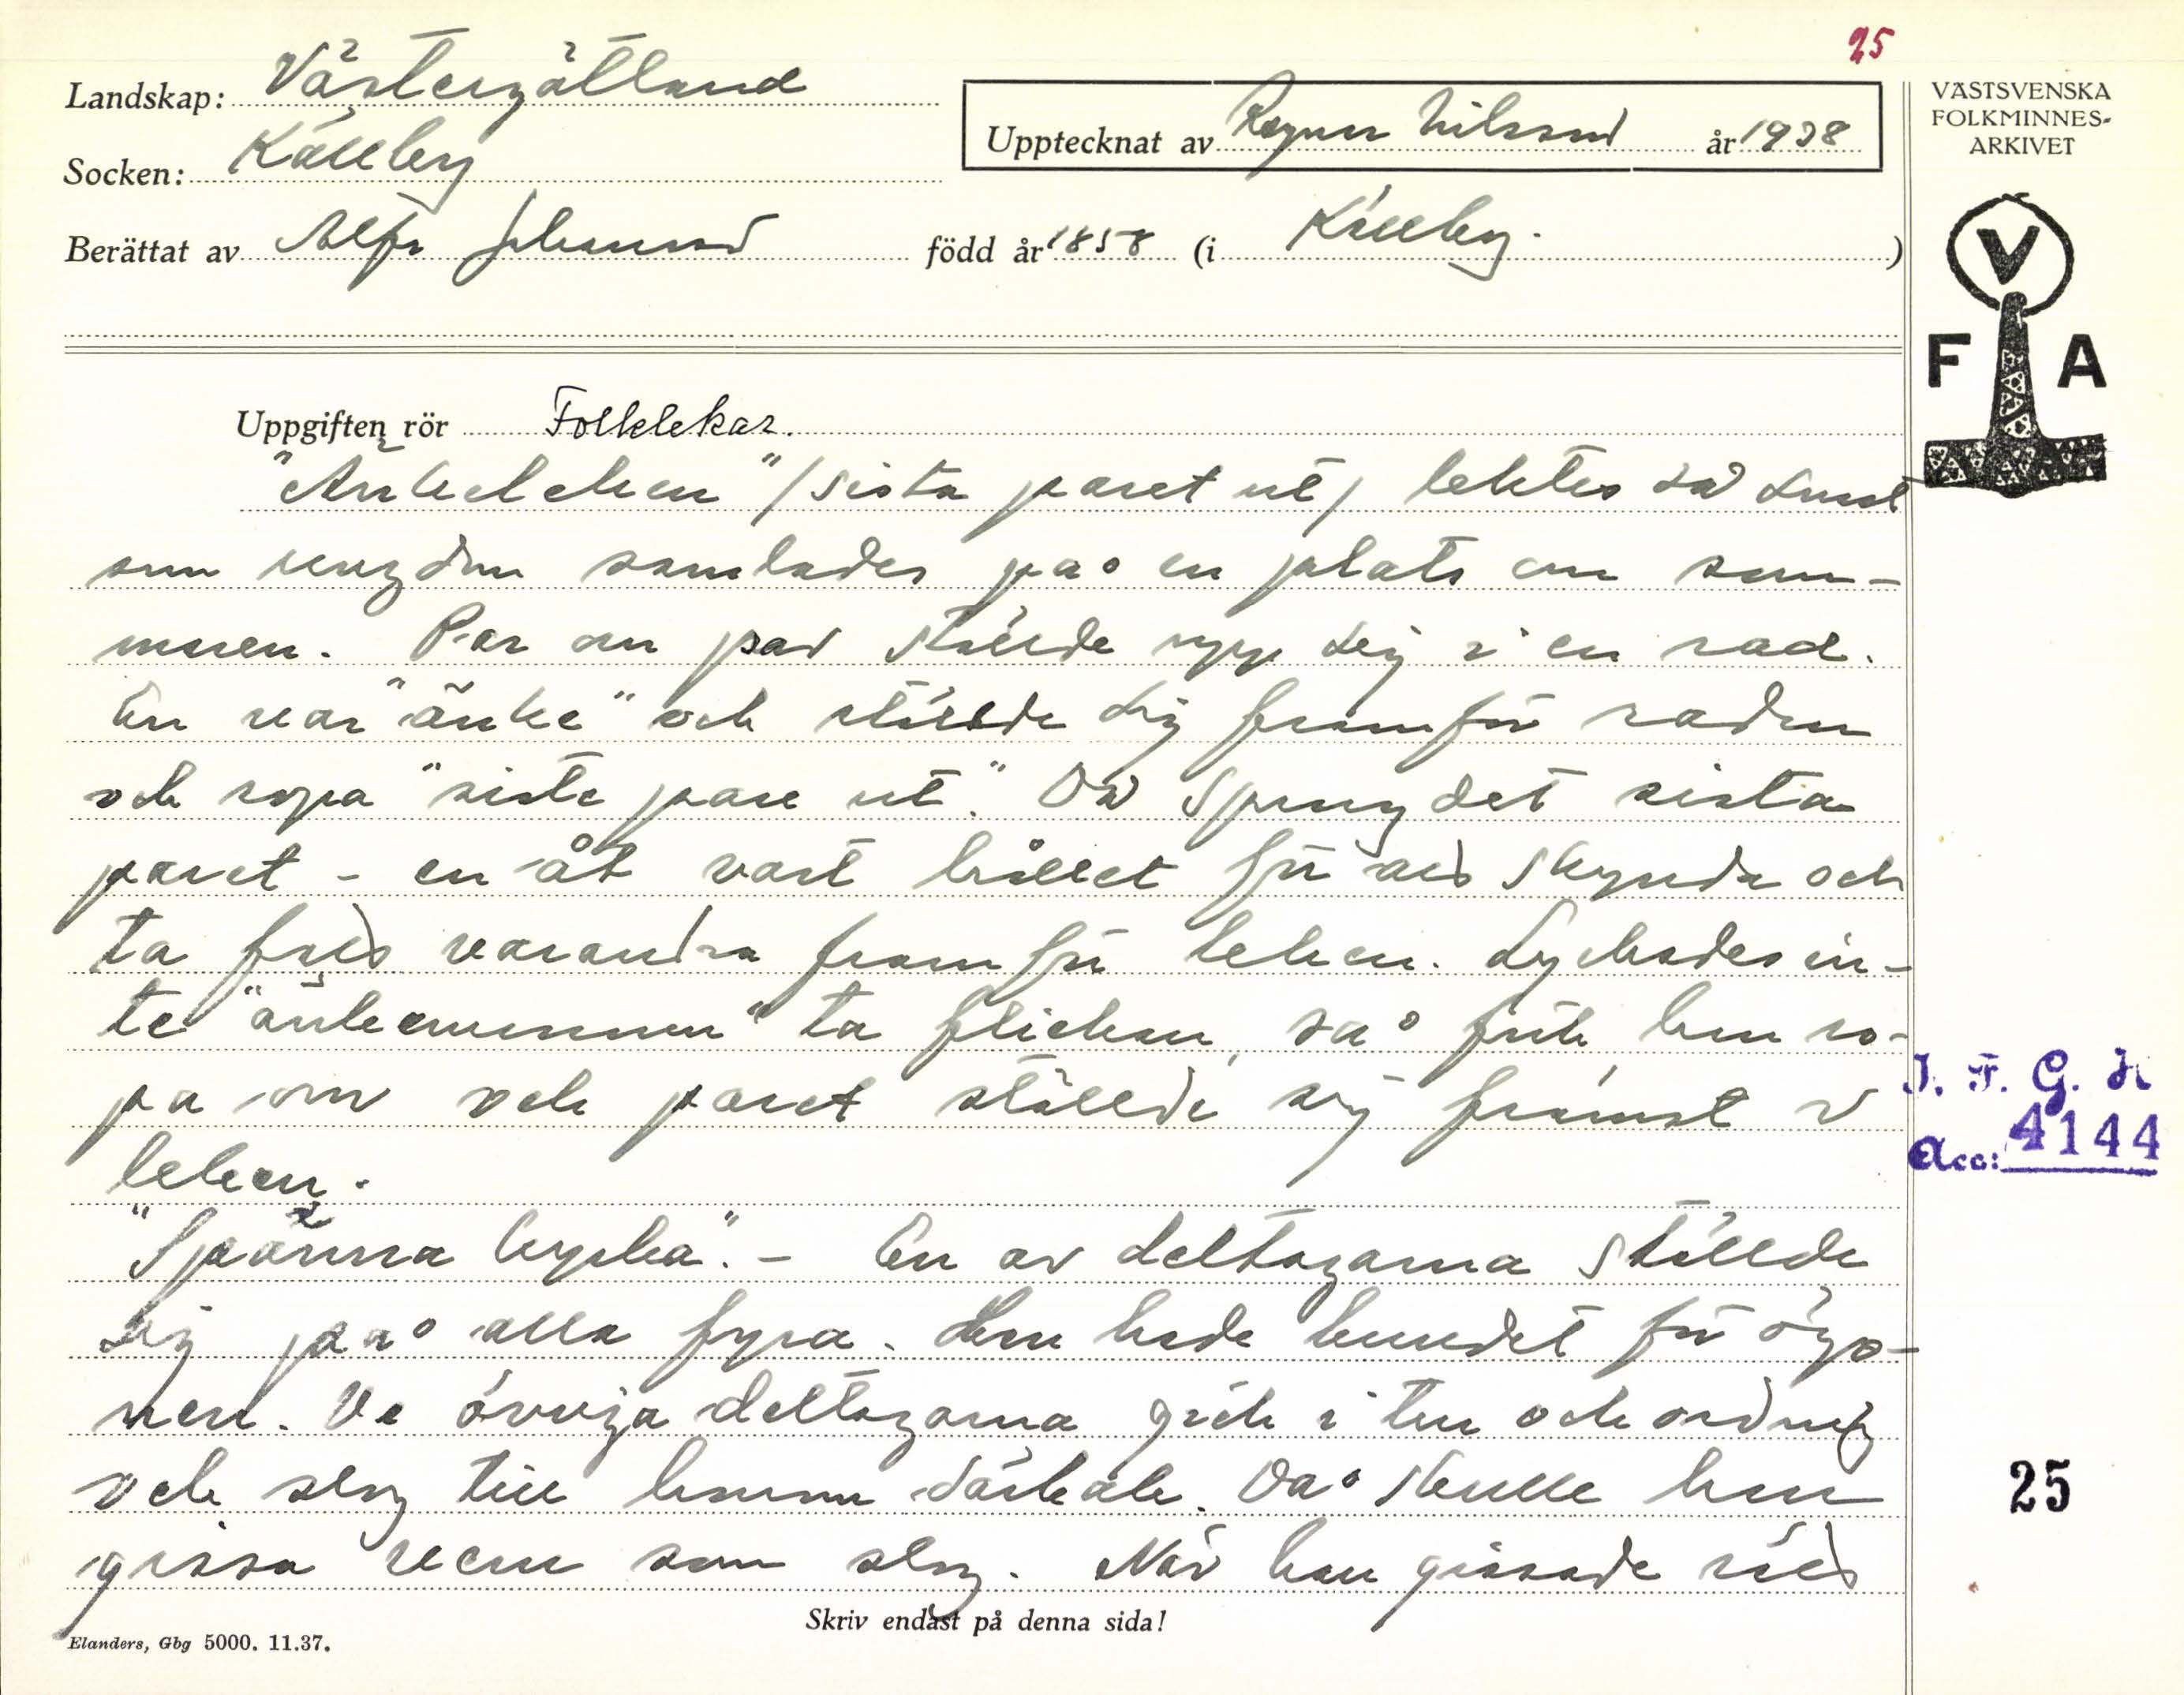 25
Landskap: Västergötland
Socken: Källby
Berättat av Alfr. Johansson
Upptecknat av Ragnar Nilsson år 1938
född år 1858 (i Källby.)
VÄSTSVENSKA
FOLKMINNES-
ARKIVET
V
F A
Uppgiften rör Folklekar.
"Änkeleken" /sista paret ut/ lektes då
som ungdom samlades på en plats om som-
maren. Par om par ställde upp sig i en rad.
En var "änke" och ställde sig framför raden
och ropa "siste pare ut". Då sprang det sista
paret - en åt vart hållet för att skynda och
ta fatt varandra framför leken. Lyckades in-
te "änkemannen" ta flickan, så fick han ro-
pa om och paret ställde sig främst i
leken.
"Spänna kyrka". - En av deltagarna ställde
sig på alla fyra. Han hade bundet för ögo-
nen. De övriga deltagarna gick i tur och ordning
och slog till honom därbak. Då skulle han
gissa vem som slog. När han gissade rätt
Skriv endast på denna sida!
Elanders, Gbg 5000. 11.37.
I. F. G. H
Acc: 4144
25